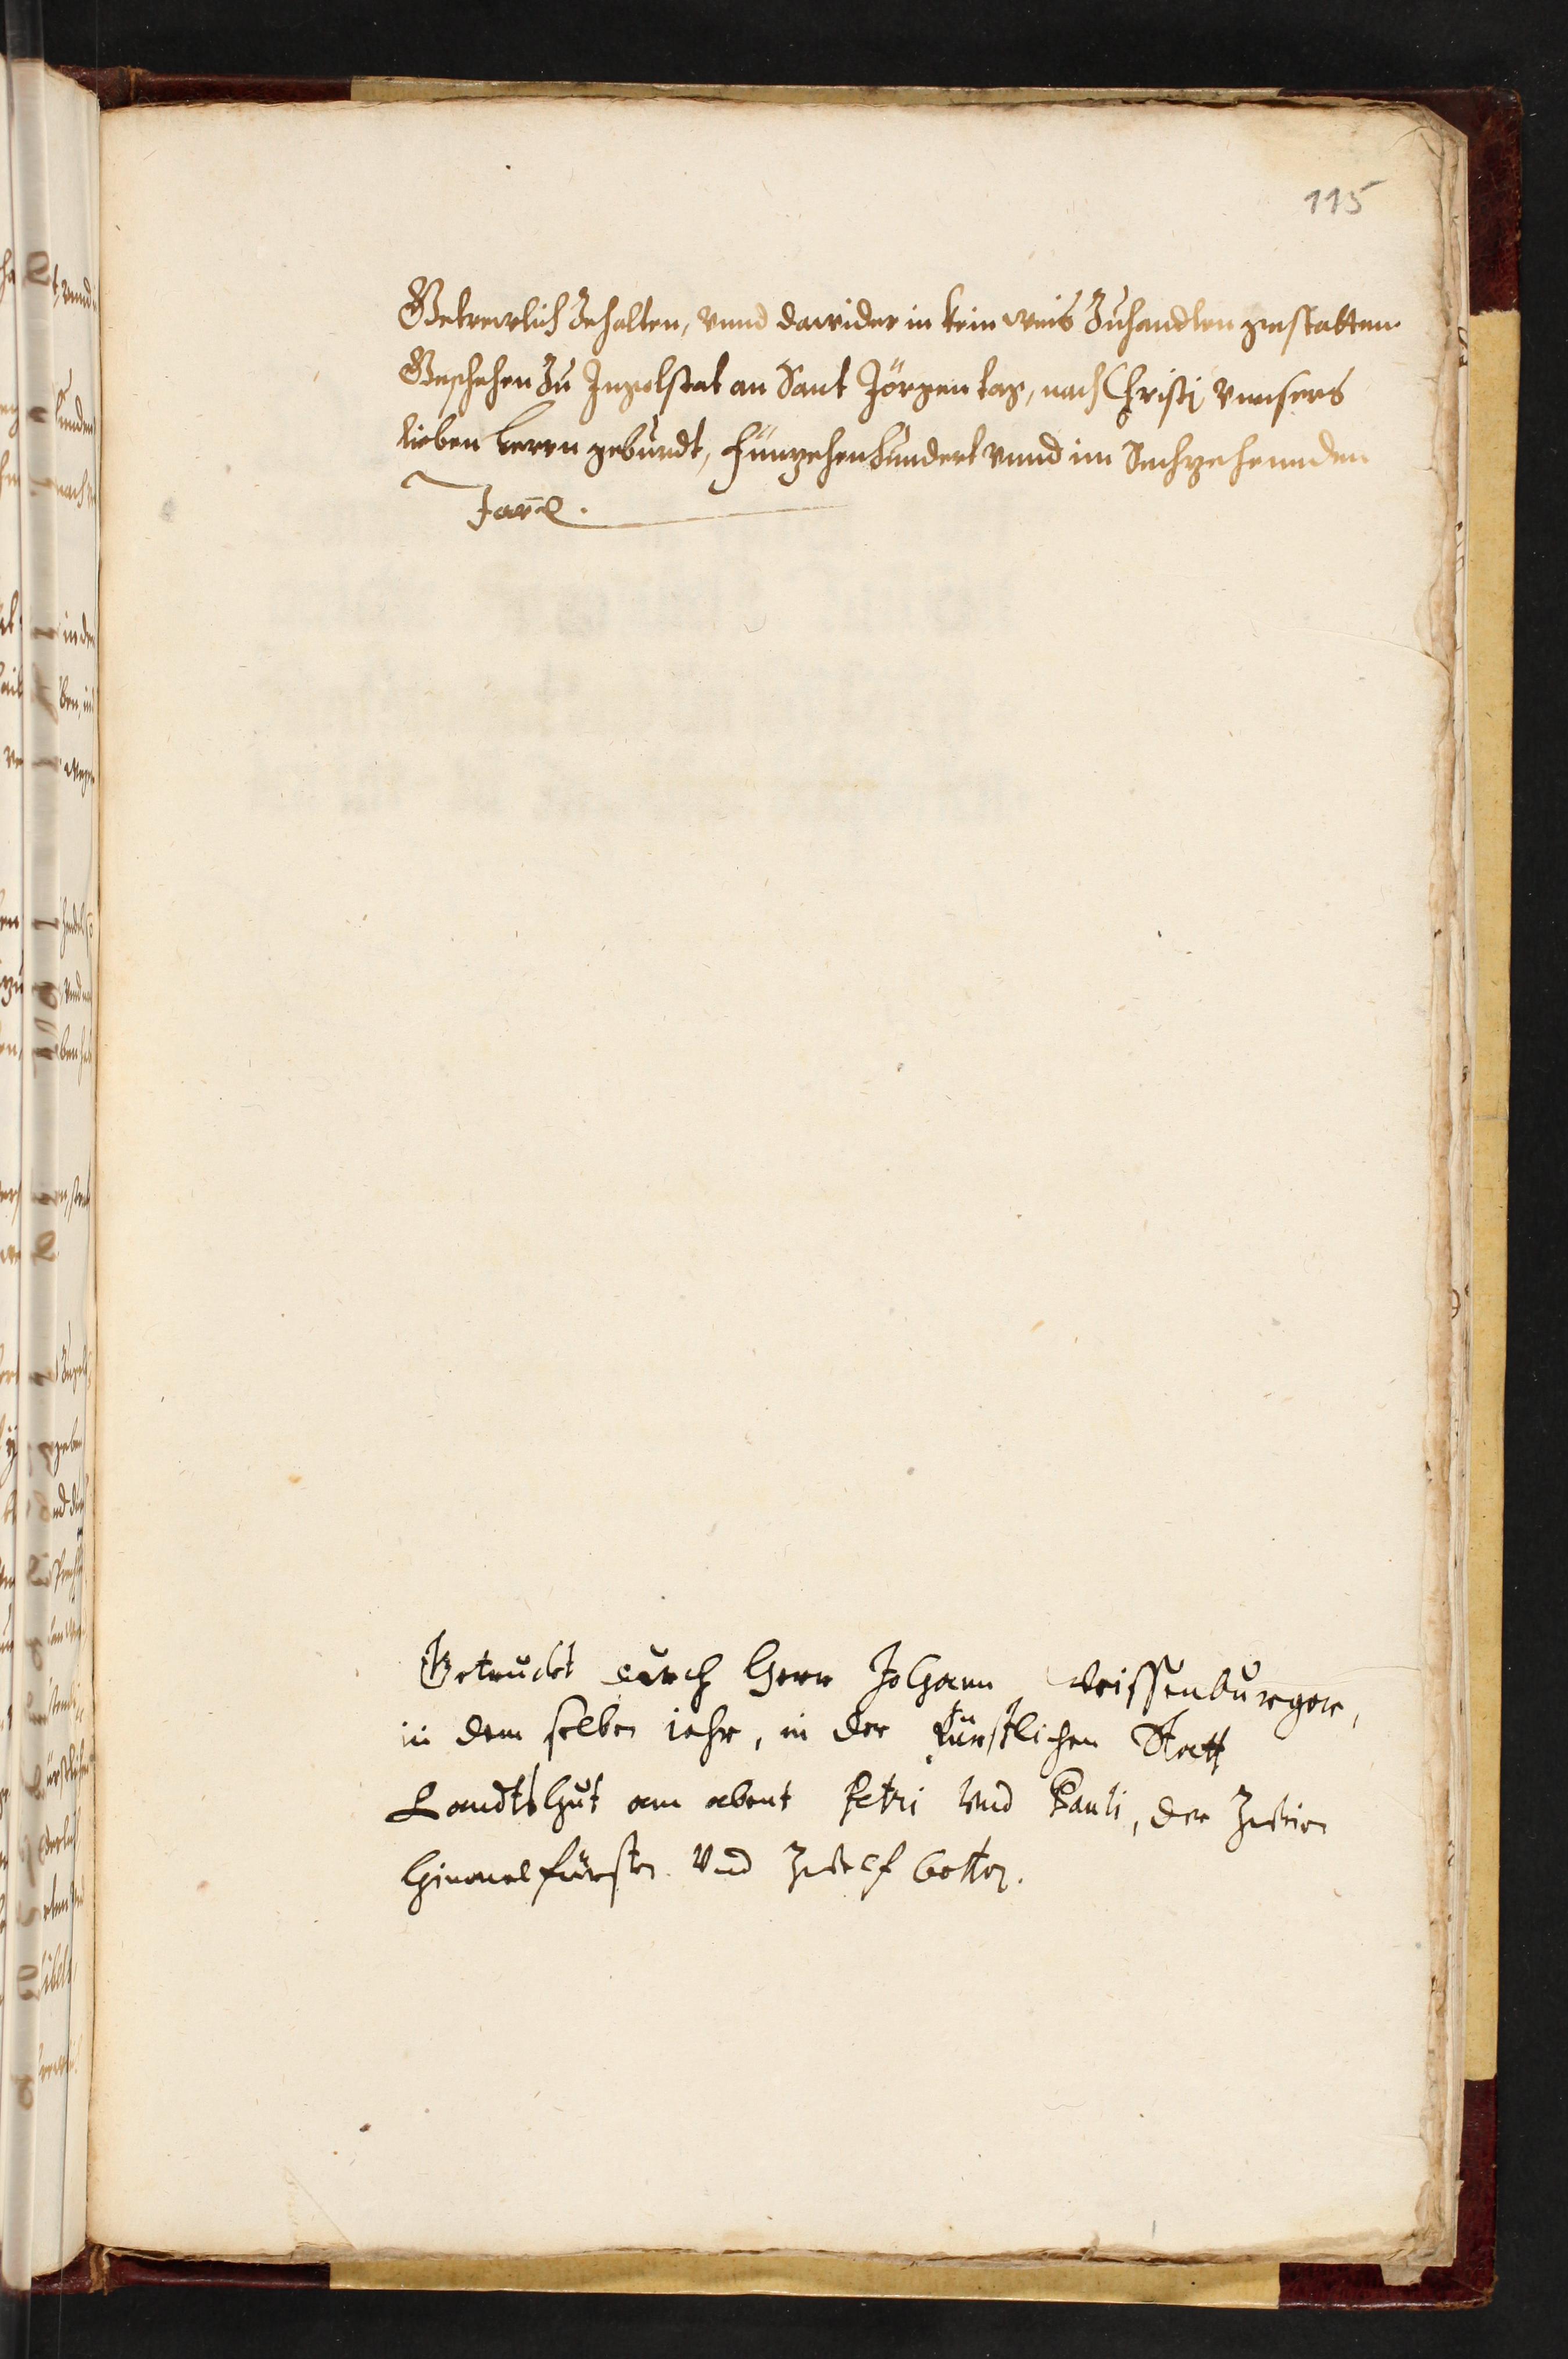 115
Getrewlich Zehalten, vnnd dawider in kein weis Zuhandlen gestatten.
Geschehen Zu Ingolstat an Sant Jörgen tag, nach Christi vnnsers
lieben herrn geburdt, Fünzehenhundert vnnd im Sechzehennden
Jare.
Getruckt durch Herr Johann Weissenburger,
in dem selben iahr, in der Fürstlichen Statt
Landtshut am abent Petri Vnd Pauli, der Zweier
Himmelfürsten Vnd Zwelf botten.